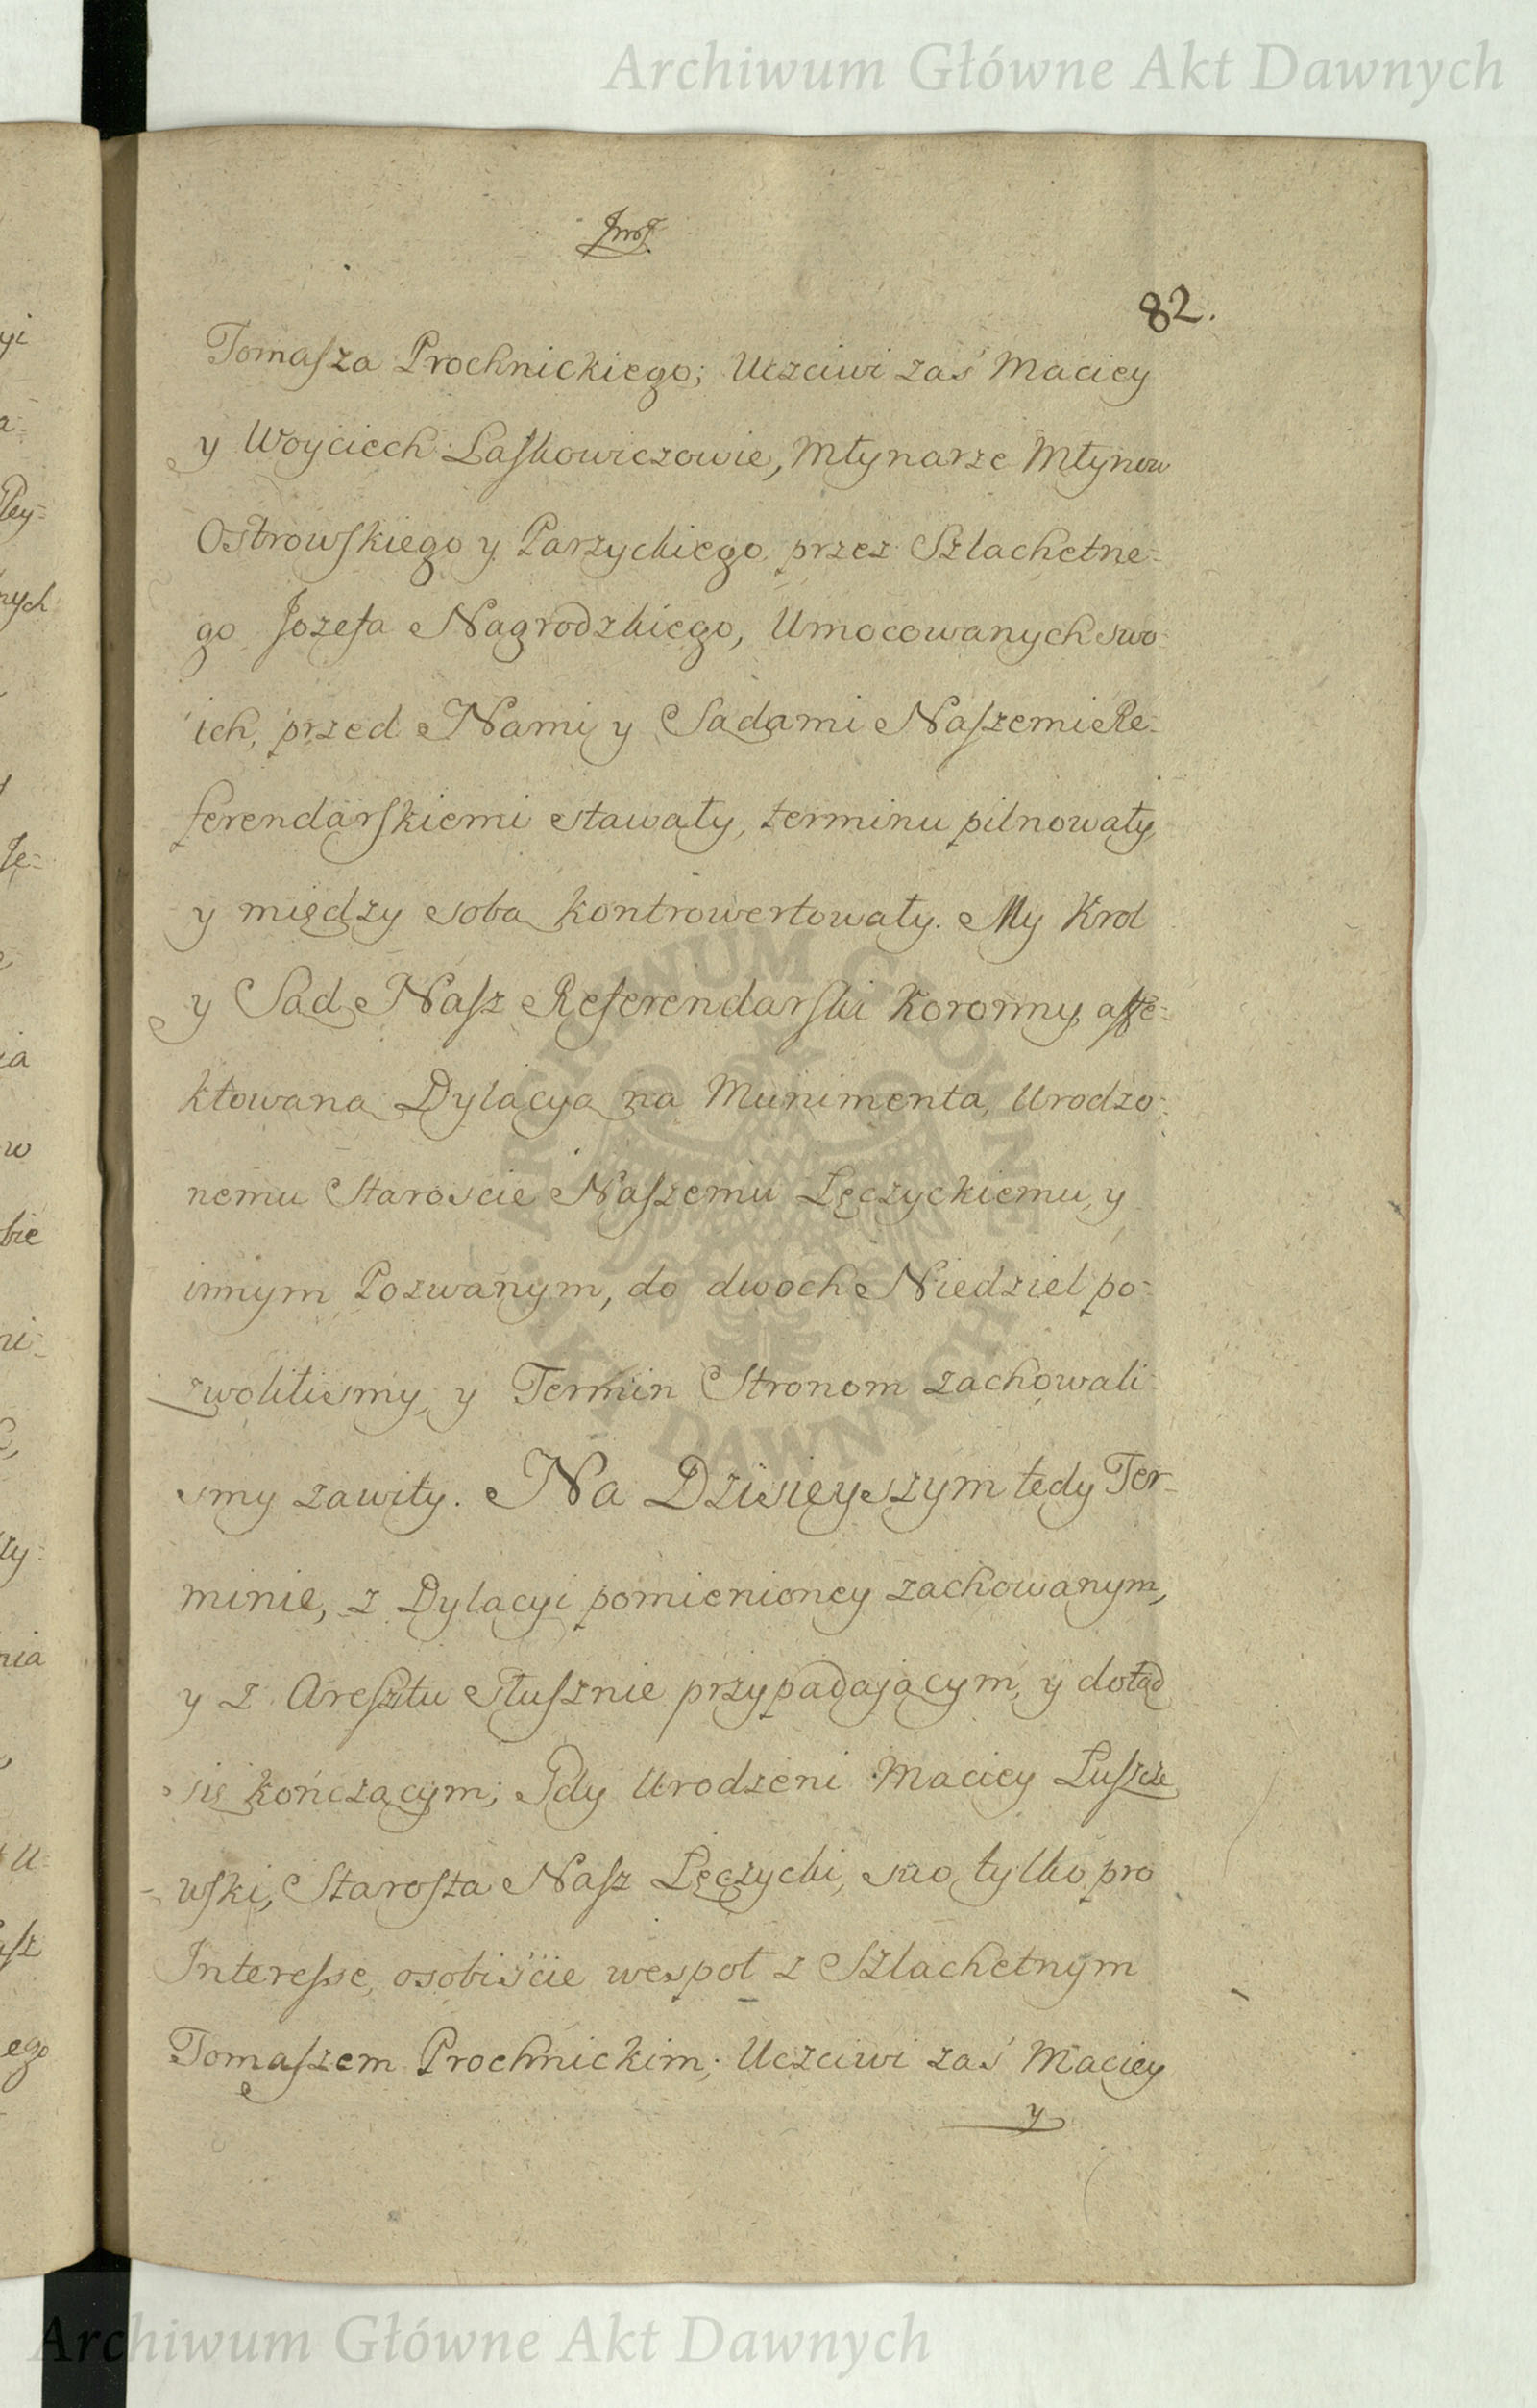 Archiwum Główne Akt Dawnych
82.
Tomasza Prochnickiego; Uczciwi zaś Maciey
y Woyciech Laskowiczowie, Młynarze Młynow
Ostrowskiego y Parzyckiego przez Szlachetne=
go Jozefa Nagrodzkiego, Umocowanych swo=
ich, przed Nami y Sądami Naszemi Re=
ferendarskiemi stawały, terminu pilnowały,
y między sobą kontrowertowały. My Krol
y Sąd Nasz Referendarski Koronny, affe=
ktowaną Dylacyą na Munimenta, Urodzo=
nemu Staroscie Naszemu Łęczyckiemu, y
innym Pozwanym, do dwoch Niedziel po=
zwolilismy, y Termin Stronom zachowali=
smy zawity. Na Dzisieyszym tedy Ter=
minie, z Dylacyi pomienioney zachowanym,
y z Aresztu słusznie przypadającym, y dotąd
się kończącym; Gdy Urodzeni Maciey Luszcze
wski, Starosta Nasz Łęczycki, suo tylko pro
Interesse, osobiście wespoł z Szlachetnym
Tomaszem Prochnickim; Uczciwi zaś Maciey
y
ARCHIWUM GŁÓWNE
AKT DAWNYCH
Archiwum Główne Akt Dawnych